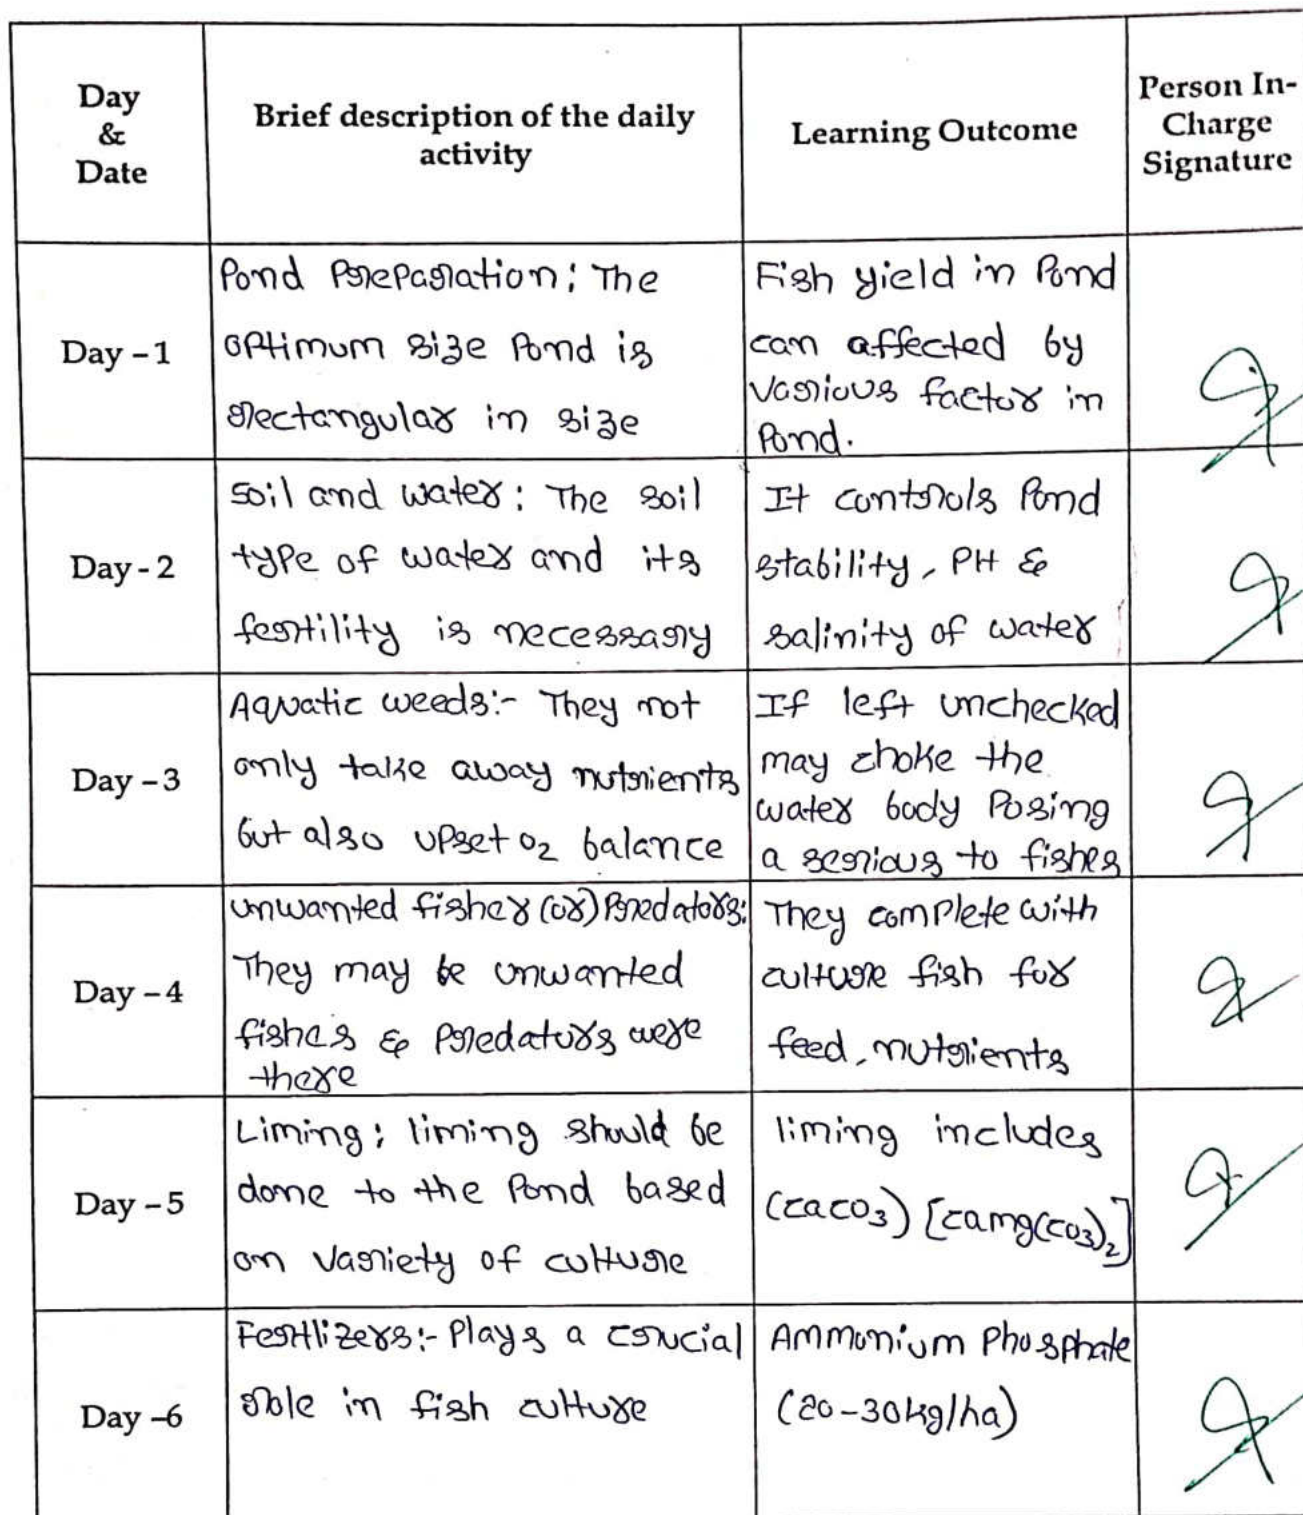 Day
&
Date
Brief description of the daily
activity
Learning Outcome
Person In-
Charge
Signature
Day - 1
Pond Preparation; The
optimum size Pond is
rectangular in size
Fish yield in Pond
can affected by
various factor in
Pond.
Day - 2
soil and water: The soil
type of water and its
fertility is necessary
It controls Pond
stability, PH &
salinity of water
Day - 3
Aquatic weeds:- They not
only take away nutrients
but also upset O2 balance
If left unchecked
may choke the
water body Posing
a serious to fishes
Day - 4
unwanted fisher (or) Predators:
They may be unwanted
fishes & Predators were
there
They complete with
culture fish for
feed, nutrients
Day - 5
Liming; liming should be
done to the Pond based
on variety of culture
liming includes
(CaCO3) [camg(CO3)2]
Day -6
Fertlizers:- Plays a crucial
role in fish culture
Ammonium Phosphate
(20-30kg/ha)